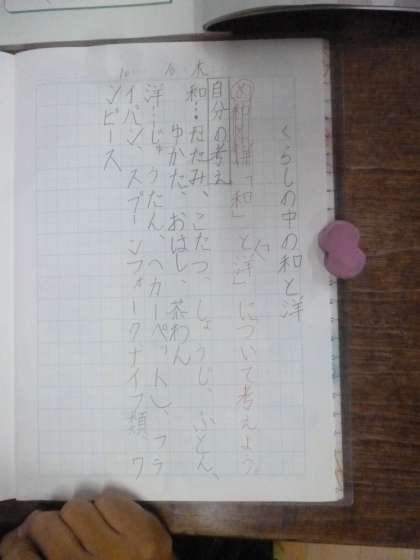 くらしの中の和と洋
め 和と洋「和」と「洋」について考えよう
自分の考え
木
和…たたみ、こたつ、しょうじ、ふとん、
ゆかた、おはし、茶わん
10
洋…じゅうたん、(カーペット)、フラ
イパン、スプーンフォークナイフ類、ワ
ンピース